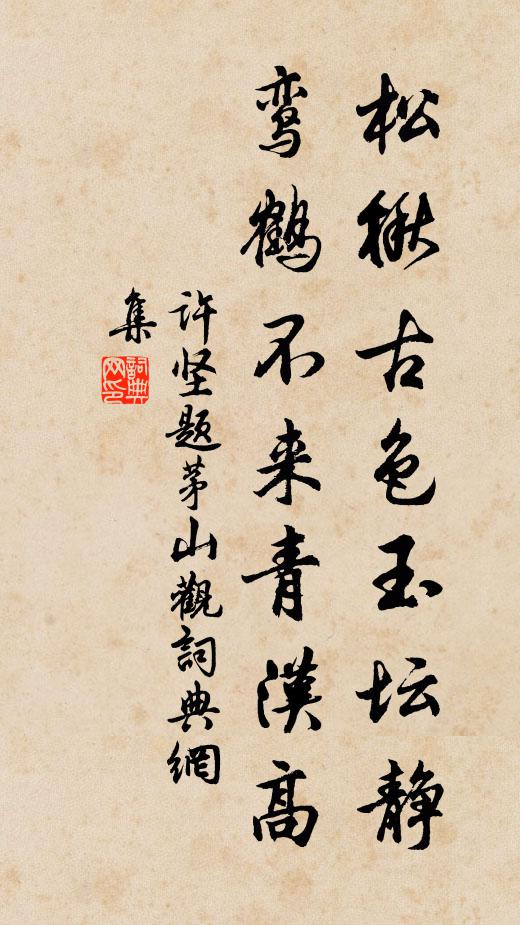 松楸古色玉坛静
鸾鹤不来青汉高
许坚题茅山觀詞典網
集
詞典网印